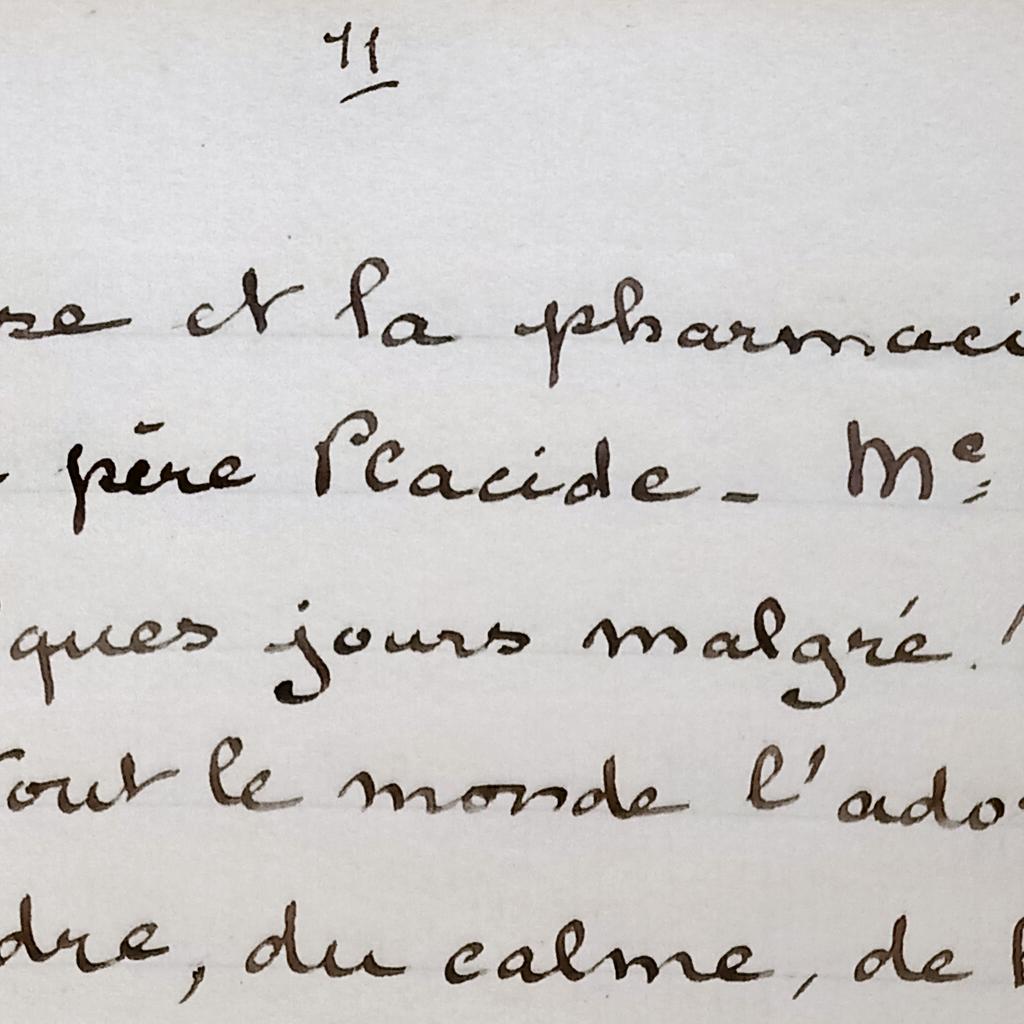 11
se et la pharmaci
père Placide - Me
ques jours malgré
tout le monde l'ado
dre, du calme, de